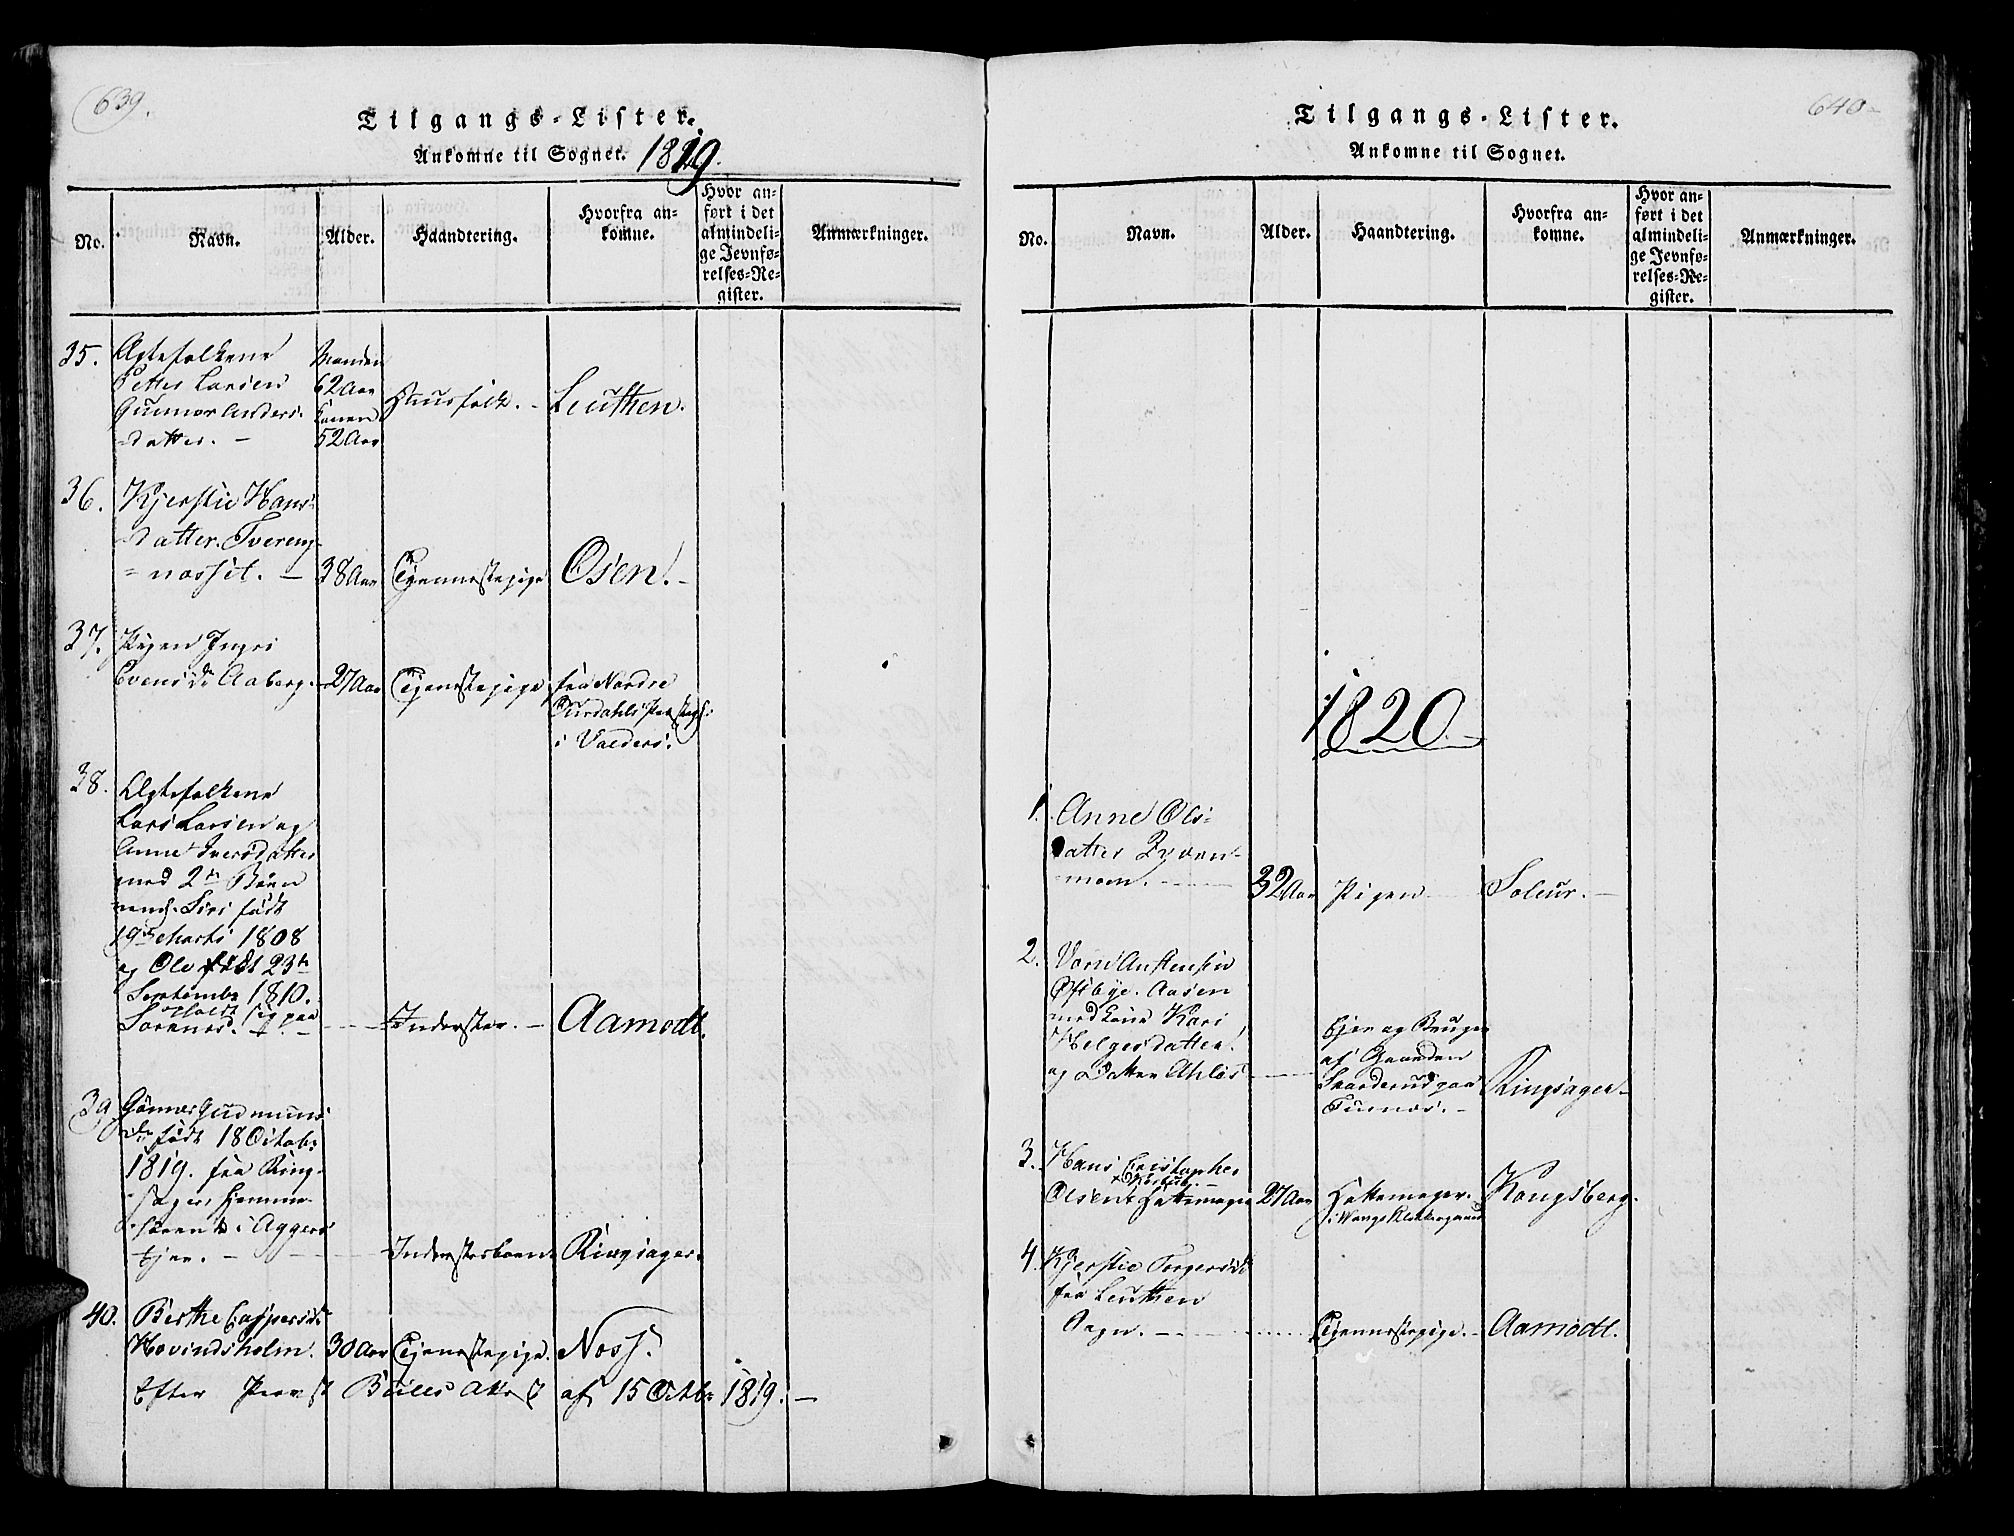 639.
Tilgangs-Lister.
Ankomne til Sognet. 1819.
No.
Navn.
Alder.
Haandtering.
Hvorfra an-
komne.
Hvor an-
ført i det
almindeli-
ge Jevnfø-
relses-Re-
gister.
Anmærkninger.
35.
Ægtefolkene
Petter Larsen
Gunnor Anders-
datter. -
Manden
62 Aar
Konen
52 Aar
Huusfolk. -
Leuthen.
36.
Kjerstie Hans-
datter. Tvereng-
38 Aar
Tjenestepige
Osen. -
37.
Pigen Ingri
Evensdr Aaberg.
27 Aar
Tjenestepige
fra Nordre
Ourdahls Præstegj:
i Valders.
38.
Ægtefolkene
Lars Larsen og
Anne Iversdatter
med 2de Børn
nemlig Siri født
19de Marts 1808
og Ole født 23de
Septembr 1810.
opholdt sig paa
Inderster. -
Aamodt.
39
Gudmunds
dr født 18 Octobr
1819. fra Ring-
sager, hjemme-
hørende i Aggers-
Inderstesbarn
Ringsager.
40.
Berthe Caspersdr
Hovindsholm.
30 Aar
Tjenestepige.
Næss.
Efter Provst Bulls Attest af 15 Octbr 1819. -
640
Tilgangs-Lister.
Ankomne til Sognet.
No.
Navn.
Alder.
Haandtering.
Hvorfra an-
komne.
Hvor an-
ført i det
almindeli-
ge Jevnfø-
relses-Re-
gister.
Anmærkninger.
1820.
1.
Anne Ols-
datter
moen.
32 Aar
Pigen
Soleur. -
2.
Østbye. Aasen
med Kone Kari
Helgesdatter
og Datter Ahlis
Ejer og Bruger
af Gaarden
Skarderud paa
Furnæs. -
Ringsager -
3.
Hans Cristopher
Olsen Hattemager
27 Aar
Hattemager.
i Wangs Klokkergaard
Kongsberg.
4.
Kjerstie Torgersdr
fra Leuthen
Sogn. -
Tjenestepige. -
Aamodt.